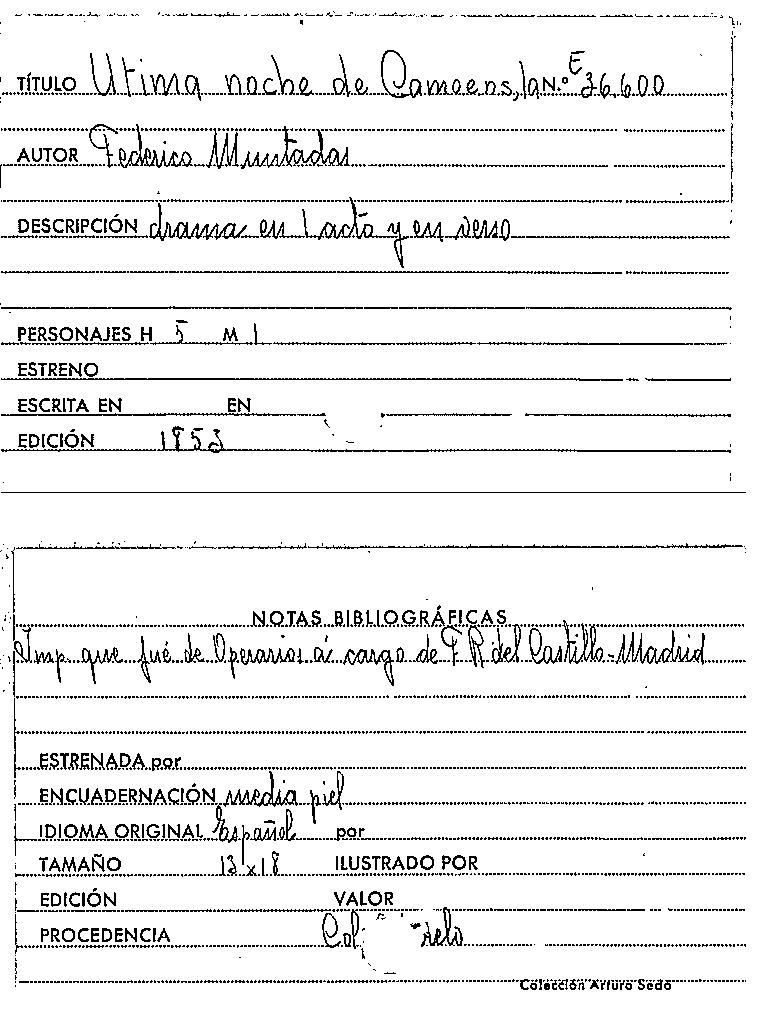 TÍTULO Utima noche de Camoens, la N.º E 36.600
AUTOR Federico Muntadas
DESCRIPCIÓN drama en 1 acto y en verso
PERSONAJES H 5 M 1
ESTRENO
ESCRITA EN EN
EDICIÓN 1853
NOTAS BIBLIOGRÁFICAS
Imp que fué de Operarios á cargo de F. R. del Castillo - Madrid
ESTRENADA por
ENCUADERNACIÓN media piel
IDIOMA ORIGINAL Español por
TAMAÑO 13 x 18 ILUSTRADO POR
EDICIÓN VALOR
PROCEDENCIA Col
Colección Arturo Sedó